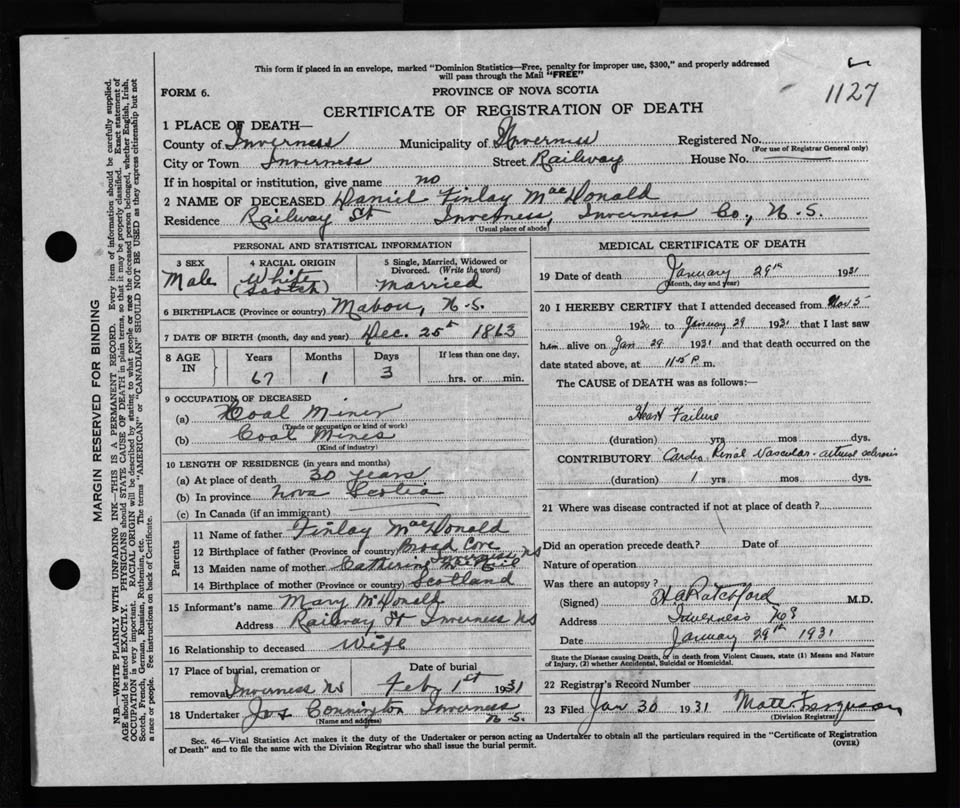 This form if placed in an envelope, marked "Dominion Statistics—Free, penalty for improper use, $300," and properly addressed
will pass through the Mail "FREE"
1127
FORM 6.
PROVINCE OF NOVA SCOTIA
CERTIFICATE OF REGISTRATION OF DEATH
1 PLACE OF DEATH—
County of Inverness Municipality of Inverness Registered No.
(For use of Registrar General only)
City or Town Inverness Street Railway House No.
If in hospital or institution, give name no
2 NAME OF DECEASED Daniel Finlay MacDonald
Residence Railway St Inverness, Inverness Co., N.S.
(Usual place of abode)
PERSONAL AND STATISTICAL INFORMATION
3 SEX Male
4 RACIAL ORIGIN White (Scotch)
5 Single, Married, Widowed or Divorced. (Write the word) Married
6 BIRTHPLACE (Province or country) Mabou, N.S.
7 DATE OF BIRTH (month, day and year) Dec. 25th 1863
8 AGE IN Years Months Days If less than one day,
67 1 3 hrs. or min.
9 OCCUPATION OF DECEASED
(a) Coal Miner
(Trade or occupation or kind of work)
(b) Coal Mines
(Kind of industry)
10 LENGTH OF RESIDENCE (in years and months)
(a) At place of death 30 years
(b) In province Nova Scotia
(c) In Canada (if an immigrant)
Parents
11 Name of father Finlay MacDonald
12 Birthplace of father (Province or country) Broad Cove Inverness NS
13 Maiden name of mother Catherine McNeil
14 Birthplace of mother (Province or country) Scotland
15 Informant's name Mary McDonald
Address Railway St Inverness NS
16 Relationship to deceased Wife
17 Place of burial, cremation or Date of burial
removal Inverness NS Feb 1st 1931
18 Undertaker Jas Connington Inverness N.S.
(Name and address)
MEDICAL CERTIFICATE OF DEATH
19 Date of death January 29th 1931
(Month, day and year)
20 I HEREBY CERTIFY that I attended deceased from Nov 5
1930 to January 29 1931 that I last saw
him alive on Jan 29 1931 and that death occurred on the
date stated above, at P. m.
The CAUSE of DEATH was as follows:—
Heart Failure
(duration) yrs mos dys.
CONTRIBUTORY Cardio Renal Vascular
(duration) 1 yrs mos dys.
21 Where was disease contracted if not at place of death?
Did an operation precede death? Date of
Nature of operation
Was there an autopsy?
(Signed) H A Ratchford M.D.
Address Inverness NS
Date January 29th 1931
State the Disease causing Death, or in death from Violent Causes, state (1) Means and Nature
of Injury, (2) whether Accidental, Suicidal or Homicidal.
22 Registrar's Record Number
23 Filed Jan 30 1931 Matt Ferguson
(Division Registrar)
Sec. 46—Vital Statistics Act makes it the duty of the Undertaker or person acting as Undertaker to obtain all the particulars required in the "Certificate of Registration
of Death" and to file the same with the Division Registrar who shall issue the burial permit. (OVER)
MARGIN RESERVED FOR BINDING
N.B.—WRITE PLAINLY WITH UNFADING INK—THIS IS A PERMANENT RECORD. Every item of information should be carefully supplied.
AGE should be stated EXACTLY. PHYSICIANS should STATE CAUSE OF DEATH in plain terms, so that it may be properly classified. Exact statement of
OCCUPATION is very important. RACIAL ORIGIN will be described by stating to what people or race the deceased person belonged, whether English, Irish,
Scotch, French, German, Russian, Ruthenian, etc. The terms "AMERICAN" or "CANADIAN" SHOULD NOT BE USED as they express citizenship but not
a race or people. See instructions on back of Certificate.